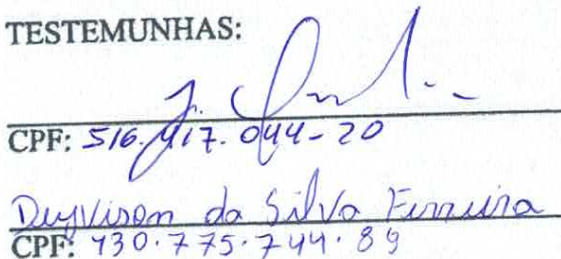 TESTEMUNHAS:
CPF: 516.417.044-20
Deyvison da Silva Ferreira
CPF: 730.775.744.89